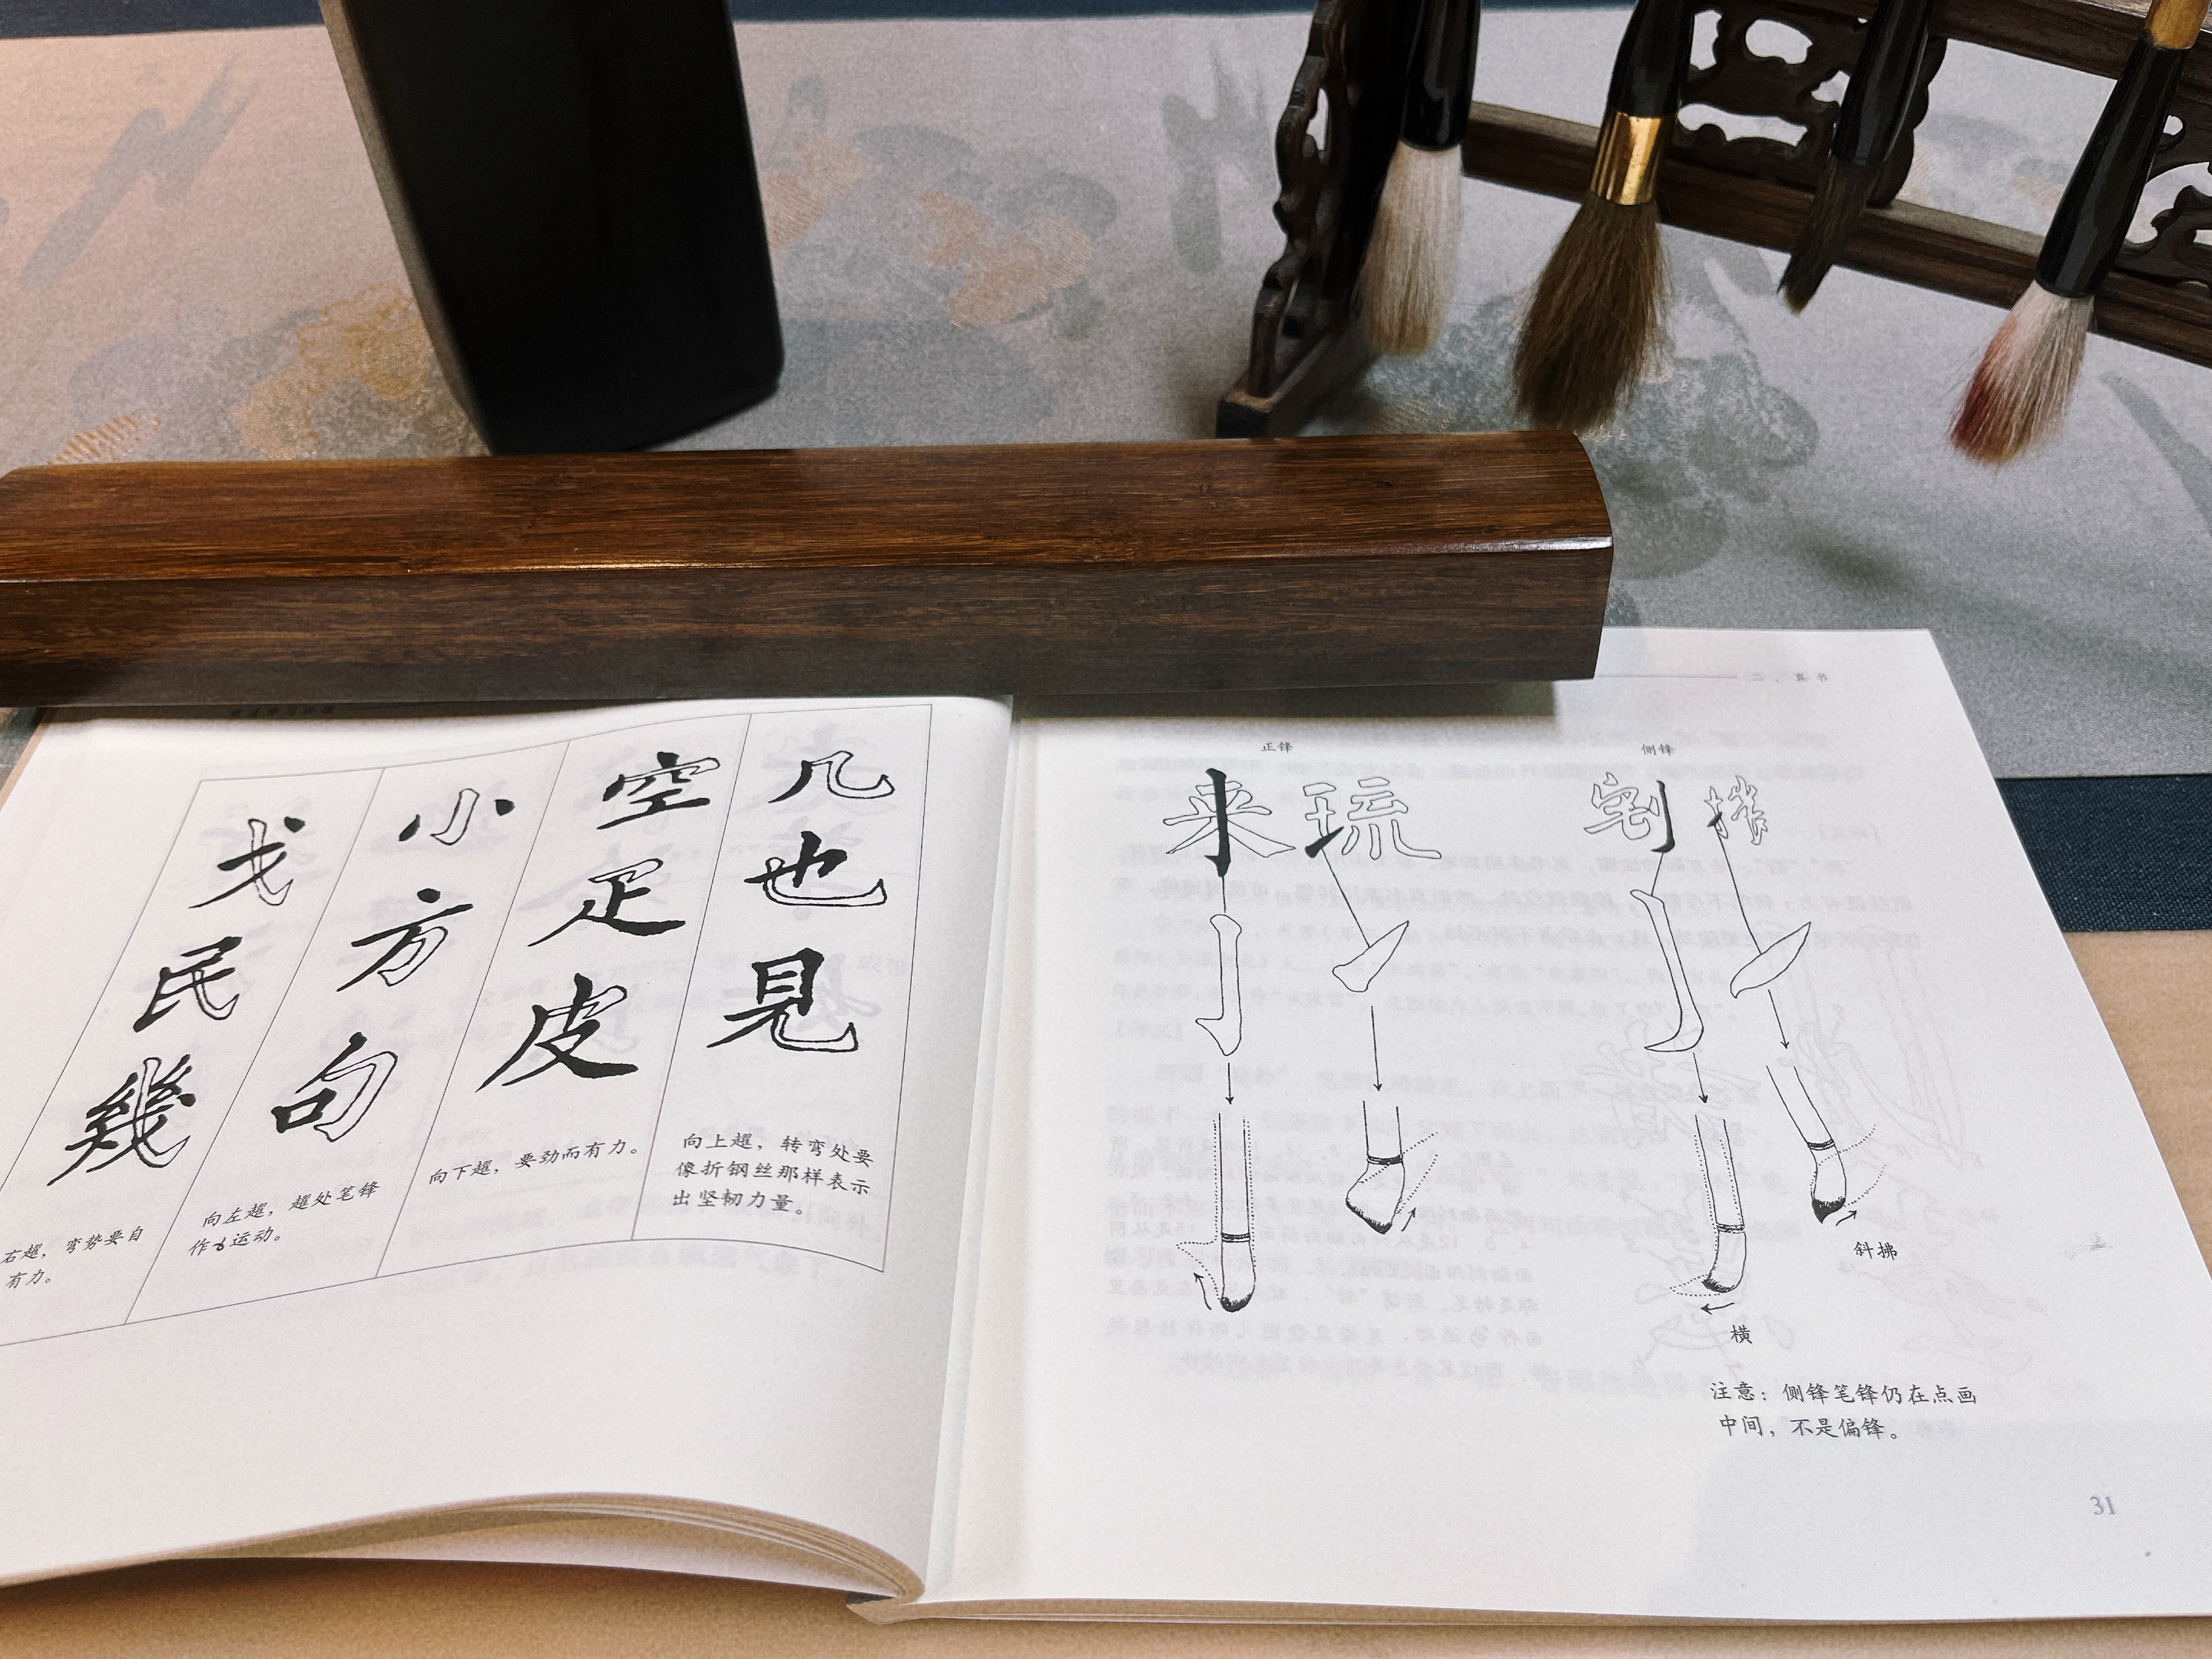 几
也
見
向上趯，转弯处要
像折钢丝那样表示
出坚韧力量。
空
疋
皮
向下趯，要劲而有力。
小
方
句
向左趯，趯处笔锋
作运动。
戈
民
幾
右趯，弯势要自
有力。
二、真书
正锋
侧锋
来 琉
割 摧
斜拂
横
注意：侧锋笔锋仍在点画
中间，不是偏锋。
31